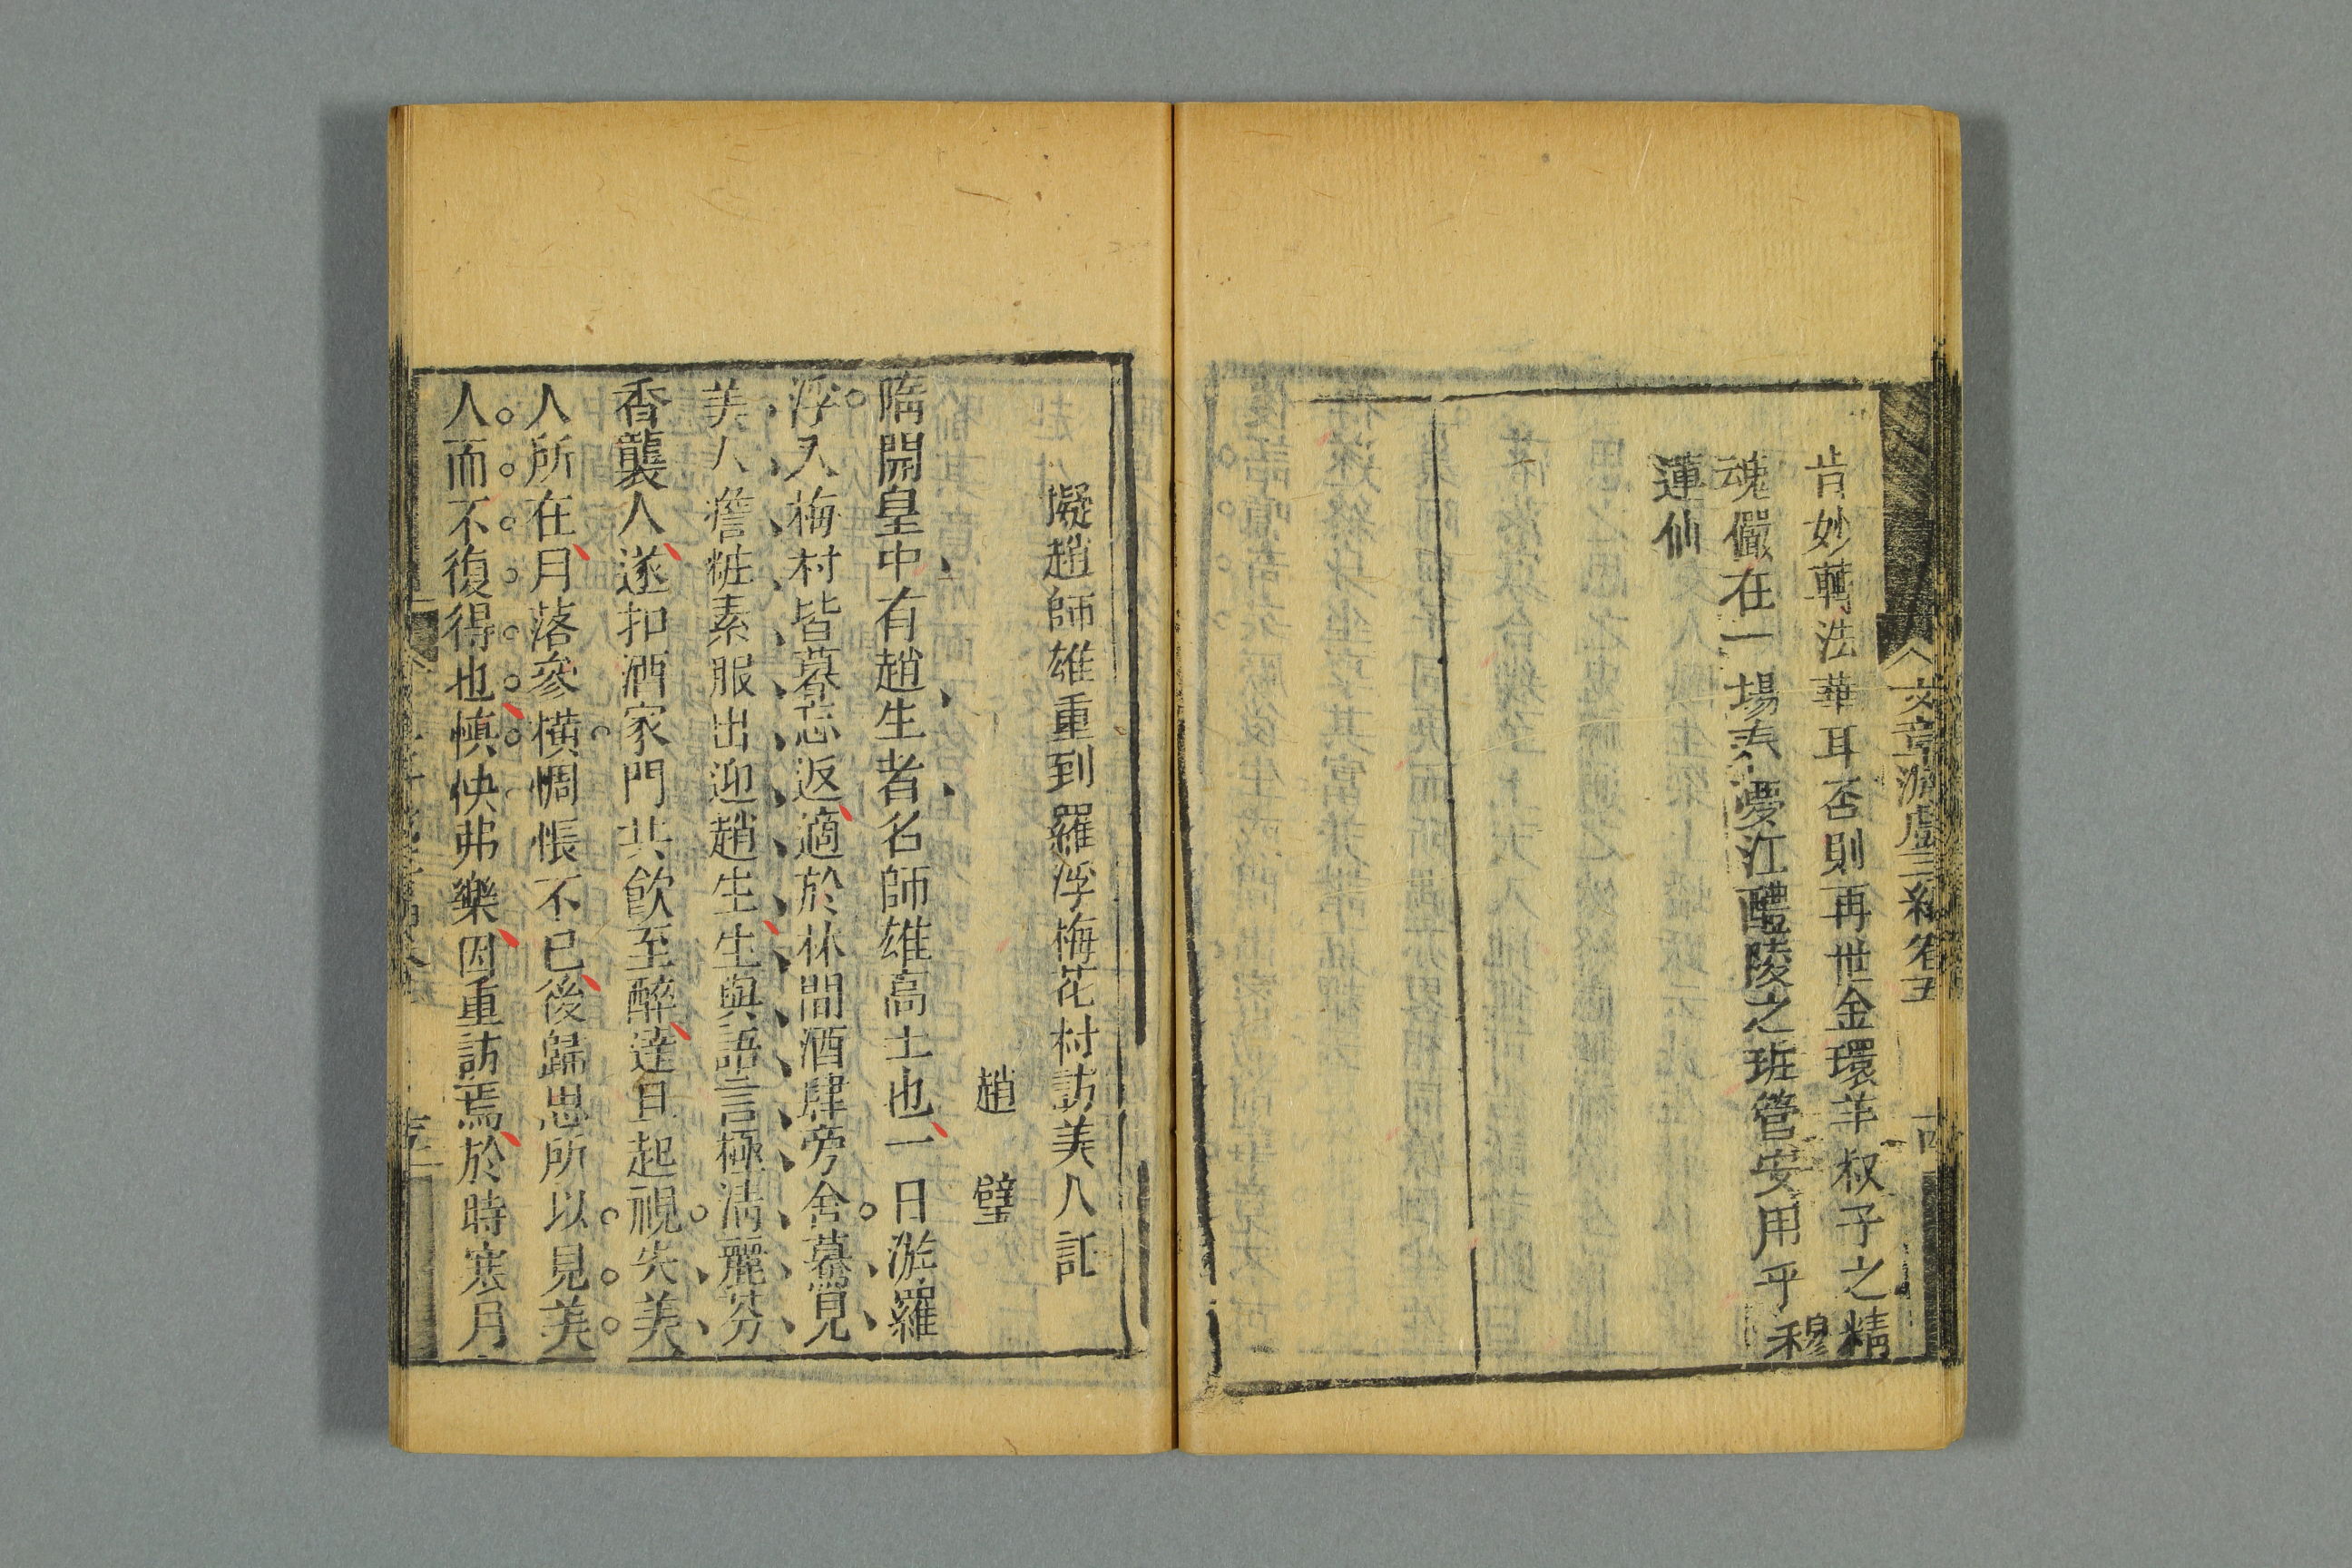 文章游戲三編卷五
肯妙轉法華耳否則再世金環羊叔子之精
魂儼在一場春夢江醴陵之班管安用乎 穆
蓮仙
擬趙師雄重到羅浮梅花村訪美人記
趙 璧
隋開皇中有趙生者名師雄高士也一日游羅
浮入梅村皆暮忘返適於林間酒肆旁舍驀覺見
美人澹粧素服出迎趙生生與語言極清麗芬
香襲人遂扣酒家門共飲至醉達旦起視失美
人所在月落參橫惆悵不已後歸思所以見美
人而不復得也慎怏弗樂因重訪焉於時寒月